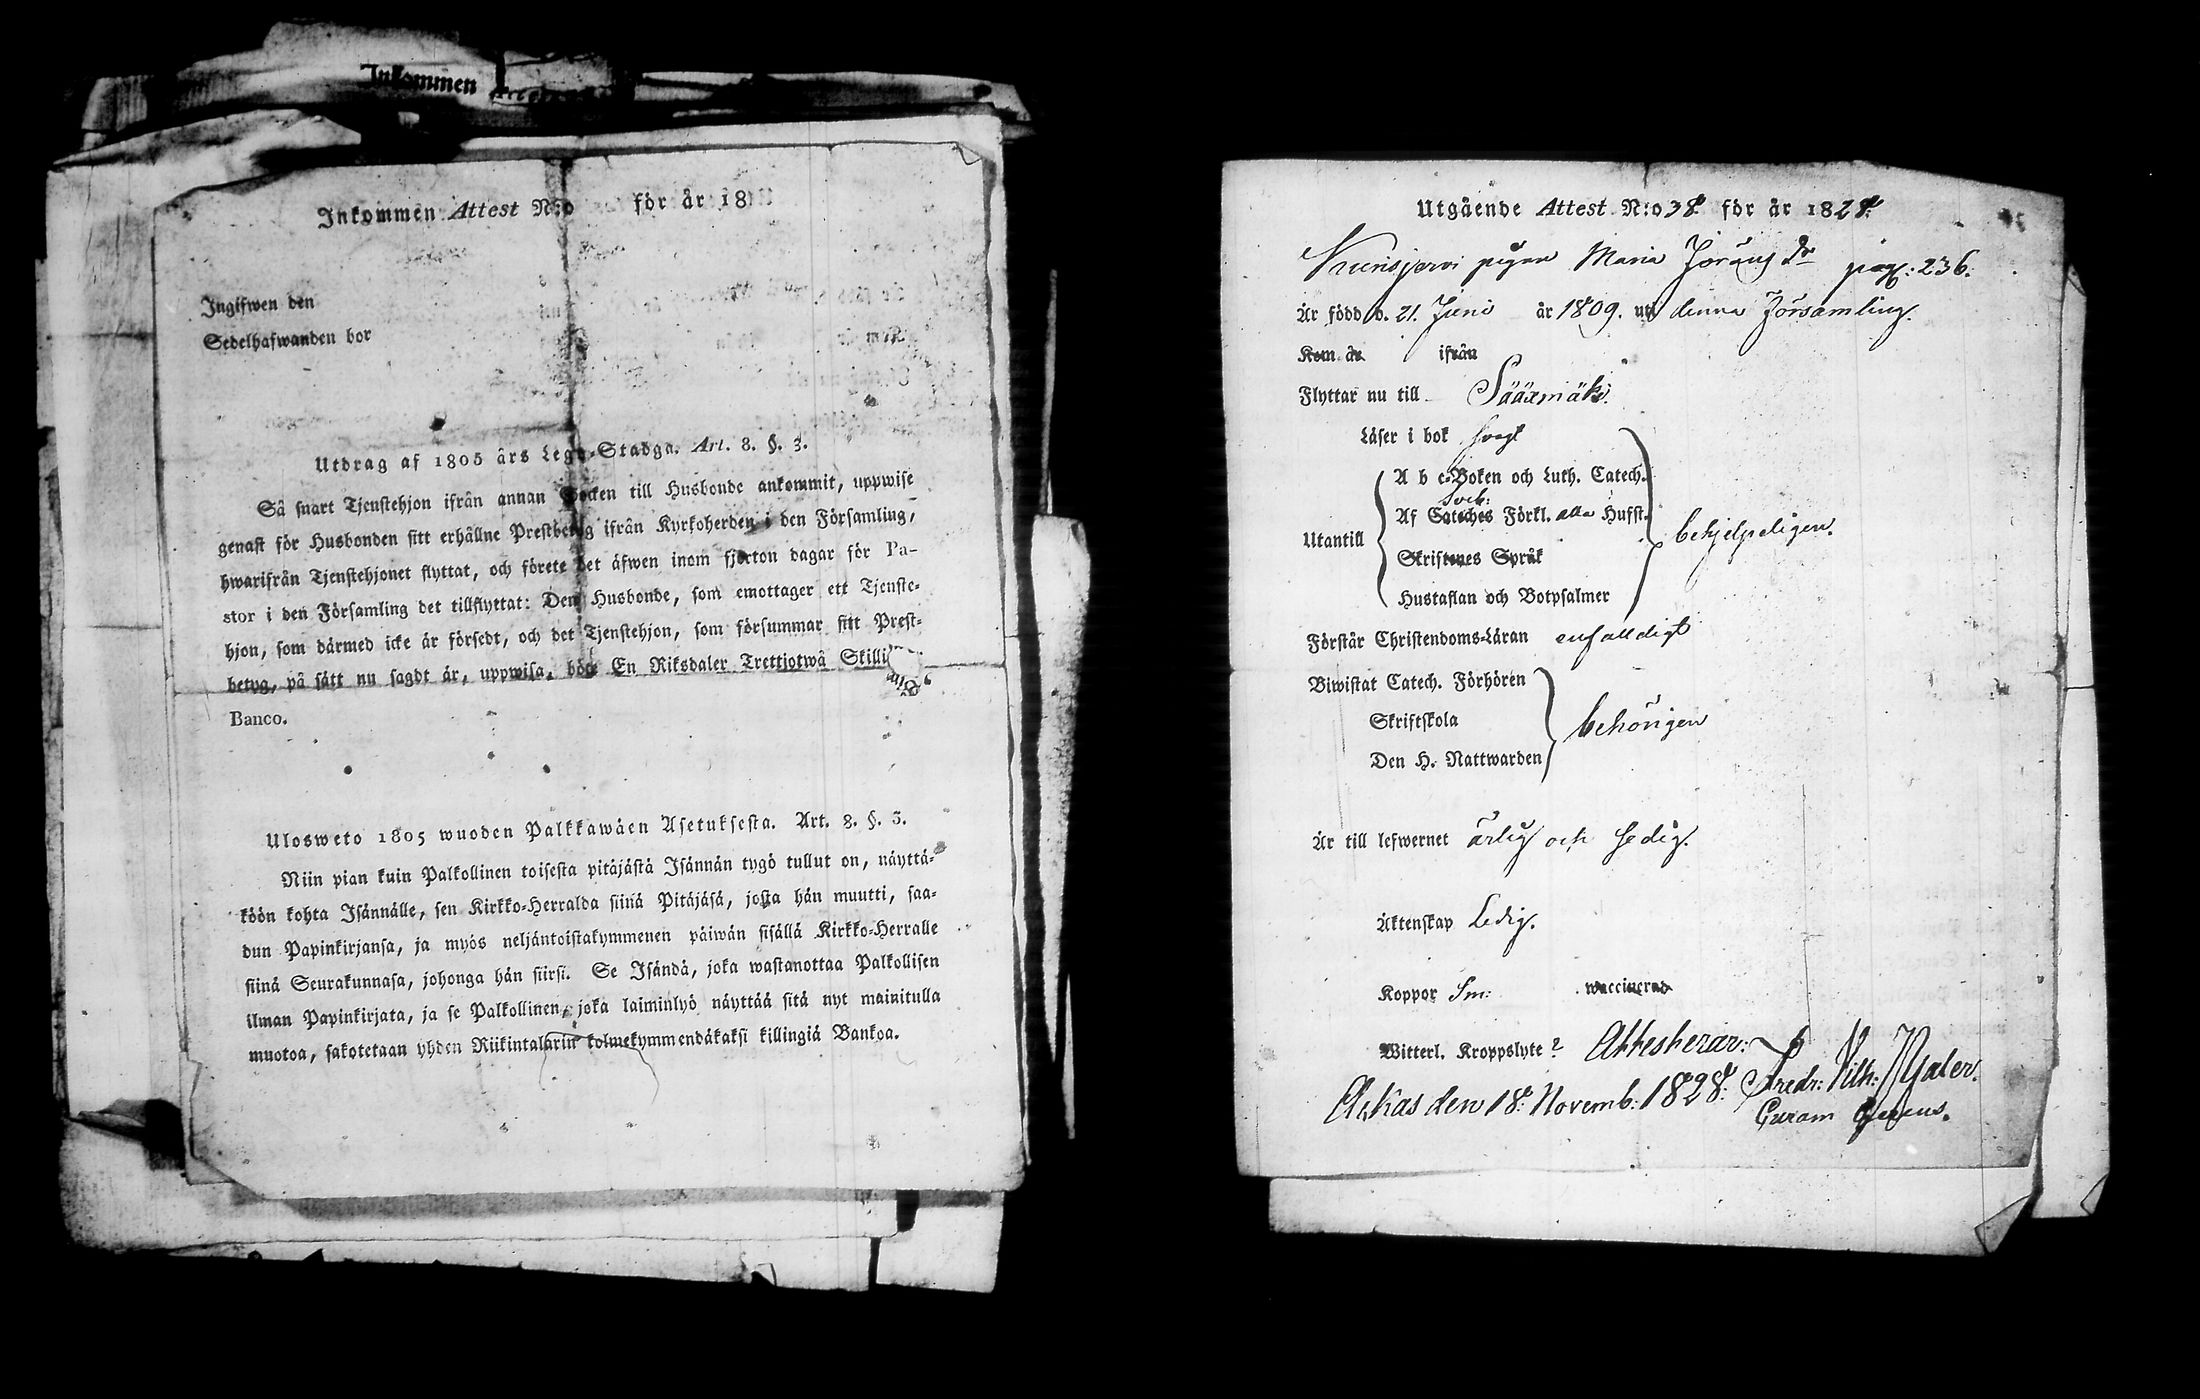 Inkommen
Inkommen Attest N:o för år 18
Ingifwen den
Sedelhafwanden bor
Utdrag af 1805 års Lego-Stadga. Art. 8. §. 3.
Så snart Tjenstehjon ifrån annan Socken till Husbonde ankommit, uppwise
genast för Husbonden sitt erhållne Prestbetyg ifrån Kyrkoherden i den Församling,
hwarifrån Tjenstehjonet flyttat, och förete det äfwen inom fjorton dagar för Pa-
stor i den Församling det tillflyttat: Den Husbonde, som emottager ett Tjenste-
hjon, som därmed icke är försedt, och det Tjenstehjon, som försummar sitt Prest-
betyg, på sätt nu sagdt är, uppwisa, böte En Riksdaler Trettjotwå Skilli
Banco.
Ulosweto 1805 wuoden Palkkawäen Asetuksesta. Art. 8. §. 3.
Niin pian kuin Palkollinen toisesta pitäjästä Isännän tygö tullut on, näyttä-
köön kohta Isännälle, sen Kirkko-Herralda siinä Pitäjäsä, josta hän muutti, saa-
dun Papinkirjansa, ja myös neljäntoistakymmenen päiwän sisällä Kirkko-Herralle
siinä Seurakunnasa, johonga hän siirsi. Se Isändä, joka wastanottaa Palkollisen
ilman Papinkirjata, ja se Palkollinen, joka laiminlyö näyttää sitä nyt mainitulla
muotoa, sakotetaan yhden Riikintalarin kolmekymmendäkaksi killingiä Bankoa.
Utgående Attest N:o 38. för år 1828.
pigan Maria Jörans dr pag: 236.
Är född d. 21. Juni år 1809. uti denna Församling.
Kom år ifrån
Flyttar nu till Sääxmäki.
Läser i bok svagt
A b c-Boken och Luth. Catech.
Sveb:
Af Catéches Förkl. alla Husst.
Utantill
behjelpeligen.
Skriftenes Språk
Hustaflan och Botpsalmer
Förstår Christendoms-Läran enfalldigt
Biwistat Catech. Förhören
Skriftskola
behörigen
Den H. Nattwarden
Är till lefwernet ärlig och sedig.
Äktenskap Ledig.
Koppor Sm: waccinerad
Witterl. Kroppslyte? Attesterar:
Ackas den 18. Novemb: 1828. Fredr: Vilh:
Curam Gerens.